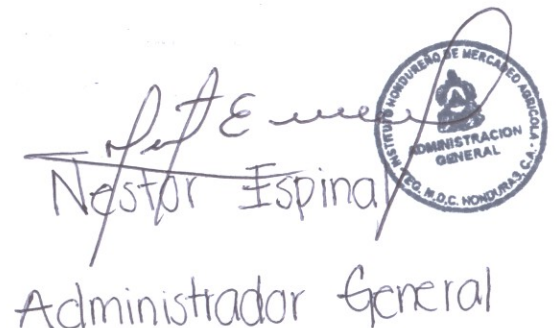 INSTITUTO HONDUREÑO DE MERCADEO AGRICOLA
ADMINISTRACION
GENERAL
TEG. M.D.C. HONDURAS, C.A.
Nestor Espinal
Administrador General